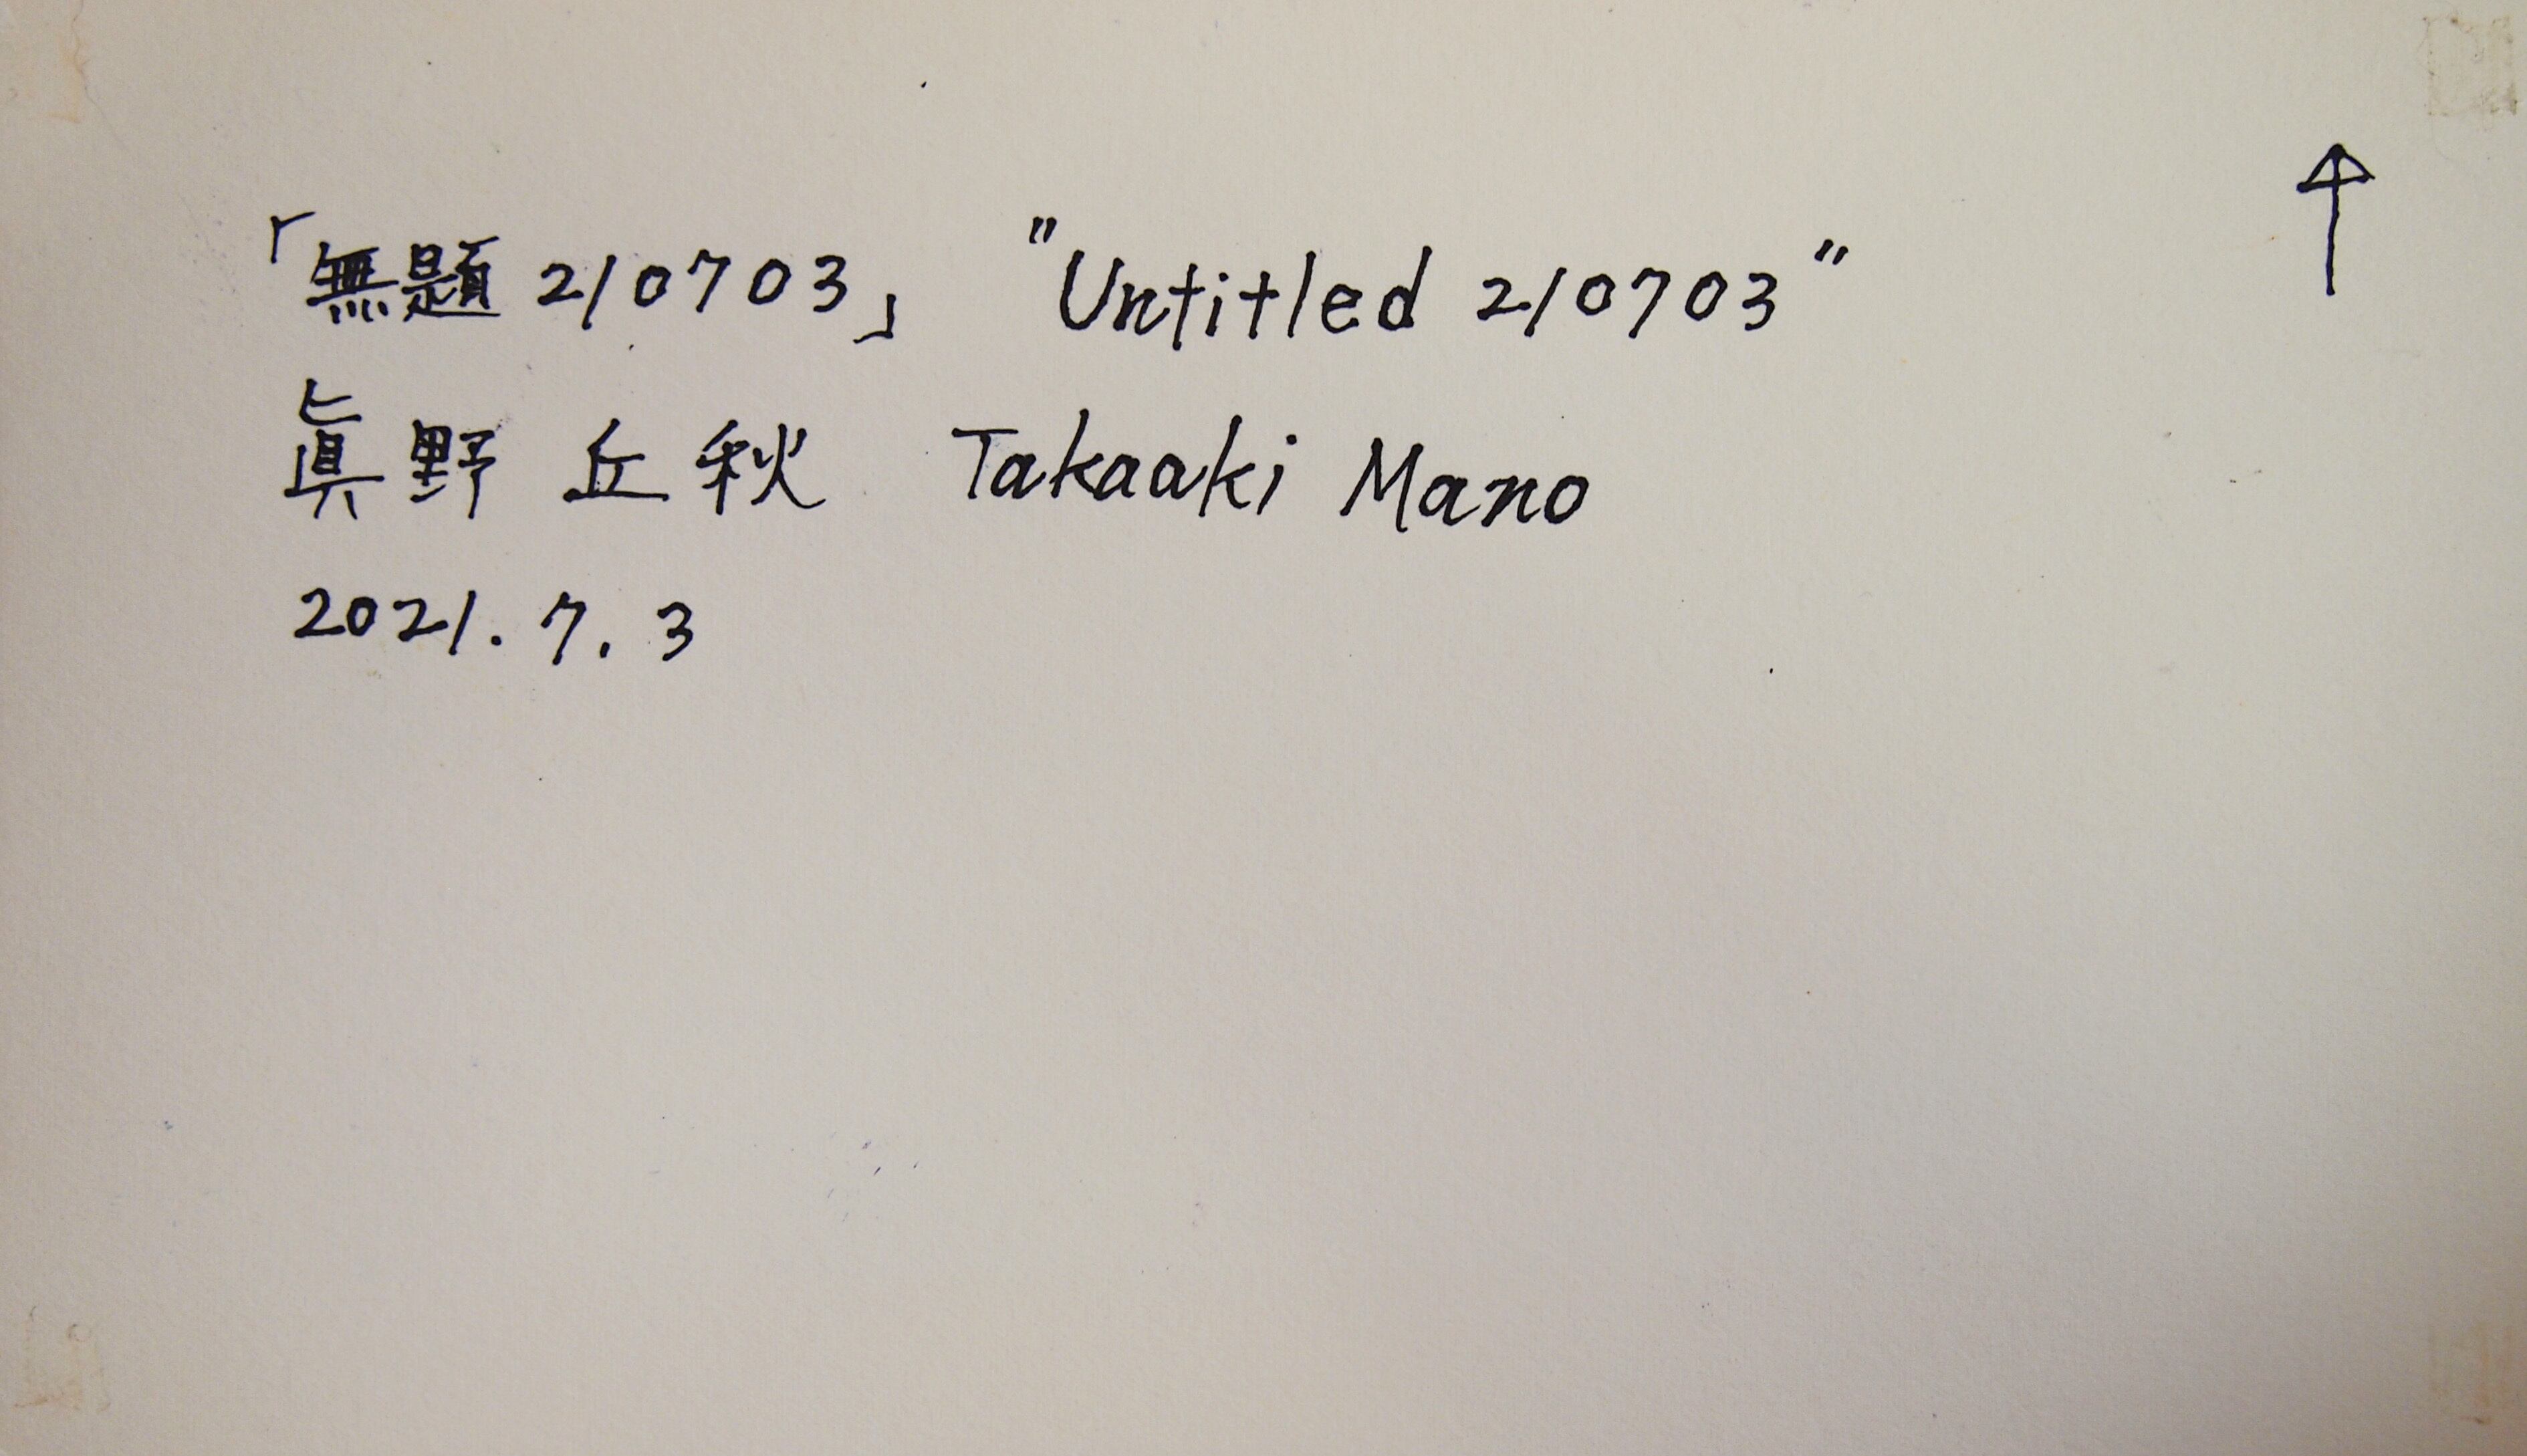 「無題 210703」 "Untitled 210703"
眞野 丘秋 Takaaki Mano
2021.7.3